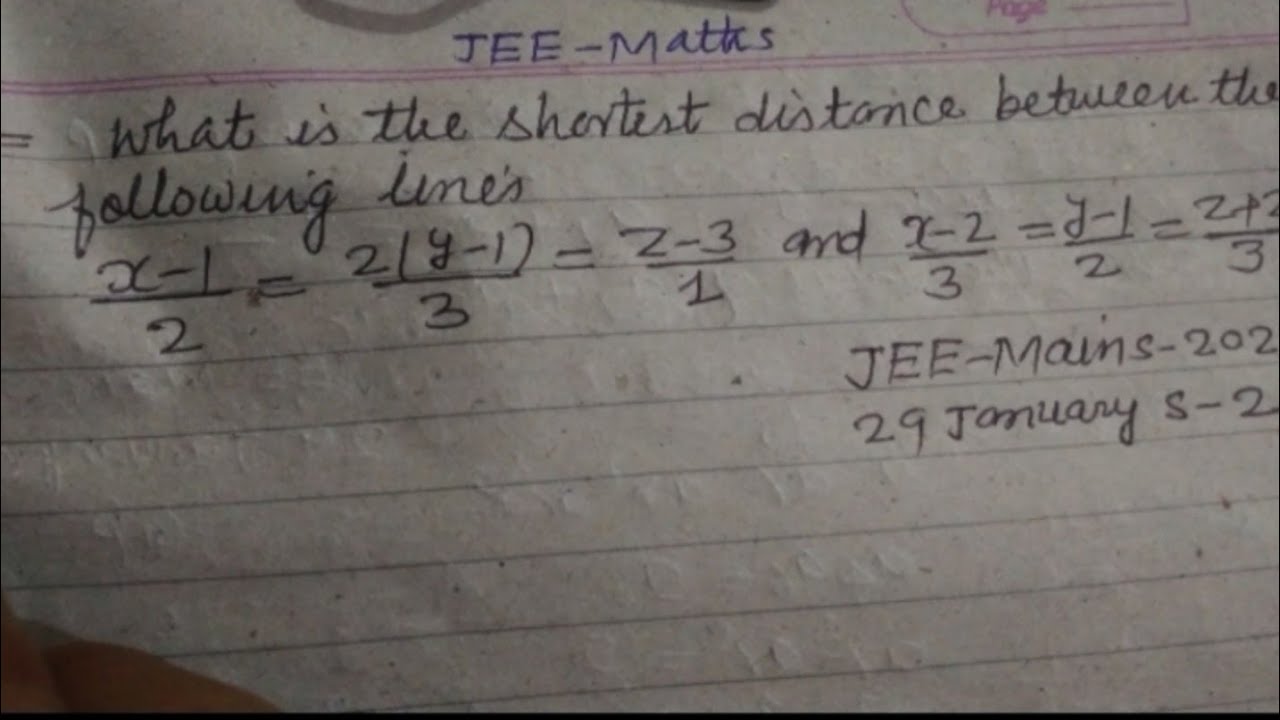 Page
JEE-Maths
= What is the shortest distance between the
following lines
x-1/2 = 2(y-1)/3 = z-3/1 and x-2/3 = y-1/2 = z+2/3
JEE-Mains-202
29 January S-2